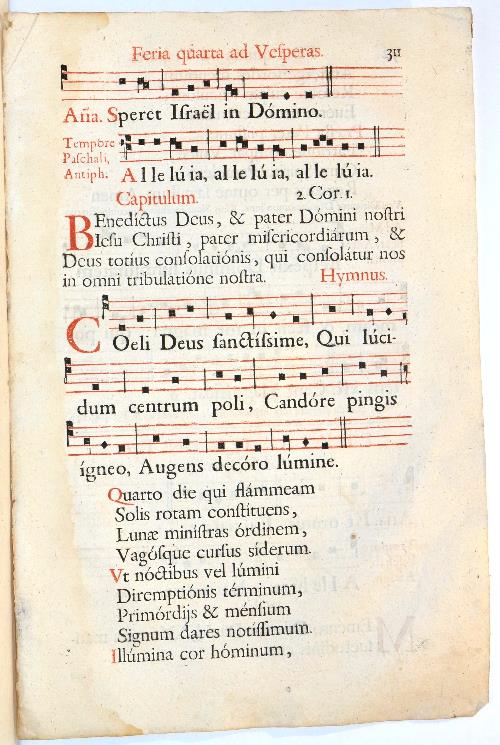 Feria quarta ad Vesperas. 311
Aña. Speret Israël in Dómino.
Tempore
Paschali,
Antiph. Al le lú ia, al le lú ia, al le lú ia.
Capitulum. 2. Cor. 1.
BEnedictus Deus, & pater Dómini nostri
Iesu Christi, pater misericordiárum, &
Deus totius consolatiónis, qui consolátur nos
in omni tribulatióne nostra. Hymnus.
COeli Deus sanctíssime, Qui lúci-
dum centrum poli, Candóre pingis
ígneo, Augens decóro lúmine.
Quarto die qui flámmeam
Solis rotam constítuens,
Lunæ minístras órdinem,
Vagósque cursus síderum.
Vt nóctibus vel lúmini
Diremptiónis términum,
Primórdijs & ménsium
Signum dares notíssimum.
Illúmina cor hóminum,